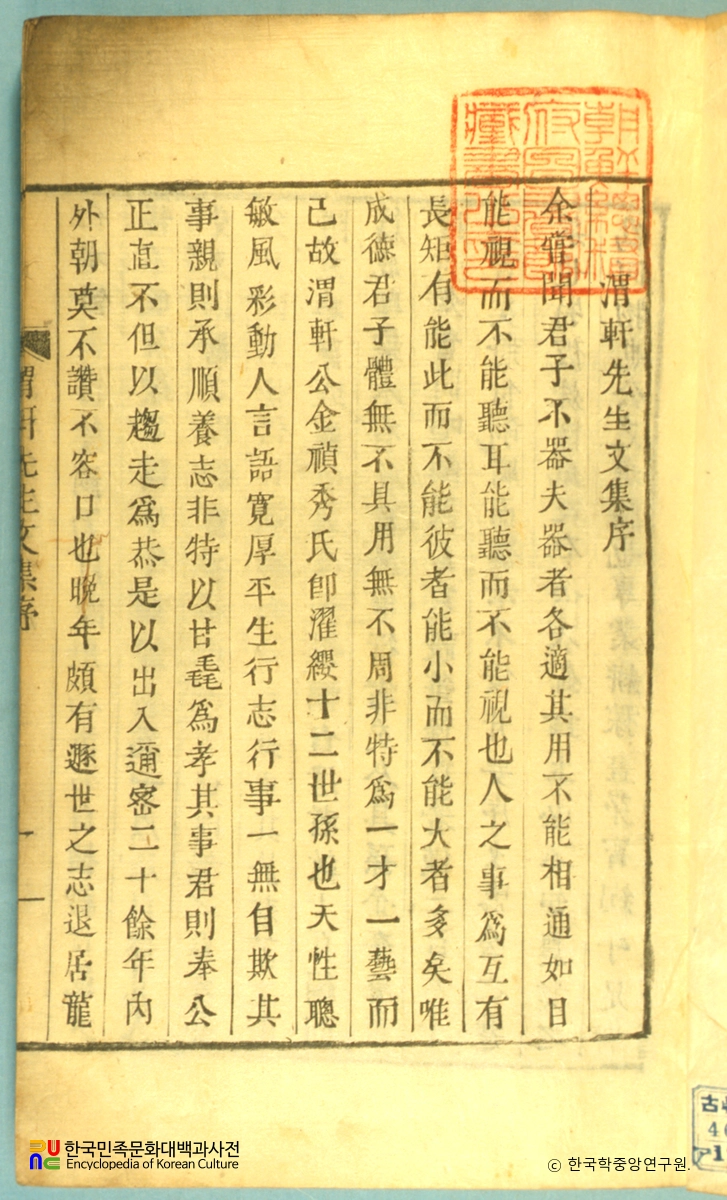 渭軒先生文集序
余嘗聞君子不器夫器者各適其用不能相通如目
能視而不能聽耳能聽而不能視也人之事爲互有
長短有能此而不能彼者能小而不能大者多矣唯
成德君子體無不具用無不周非特爲一才一藝而
已故渭軒公金禎秀氏卽濯纓十二世孫也天性聰
敏風彩動人言語寬厚平生行志行事一無自欺其
事親則承順養志非特以甘毳爲孝其事君則奉公
正直不但以趨走爲恭是以出入通密二十餘年內
外朝莫不讚不容口也晩年頗有遯世之志退居龍
渭軒先生文集序
一
朝鮮總督府圖書館藏書之印
古
46
한국민족문화대백과사전
Encyclopedia of Korean Culture
© 한국학중앙연구원.